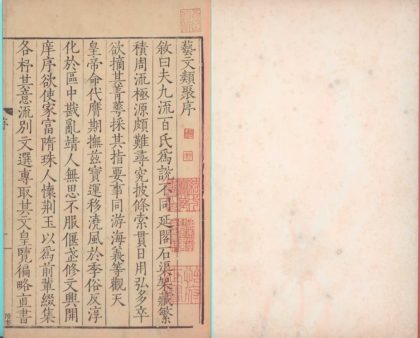 藝文類聚序
敘曰夫九流百氏爲說不同延閣石渠架藏繁
積周流極源頗難尋究披條索貫日用弘多卒
欲摘其菁華採其指要事同游海義等觀天
皇帝命代膺期撫茲寶運移澆風於季俗反淳
化於區中戡亂靖人無思不服偃武修文興開
庠序欲使家富隋珠人懷荆玉以爲前輩綴集
各杼其意流別文選專取其文皇覽徧略直書
序